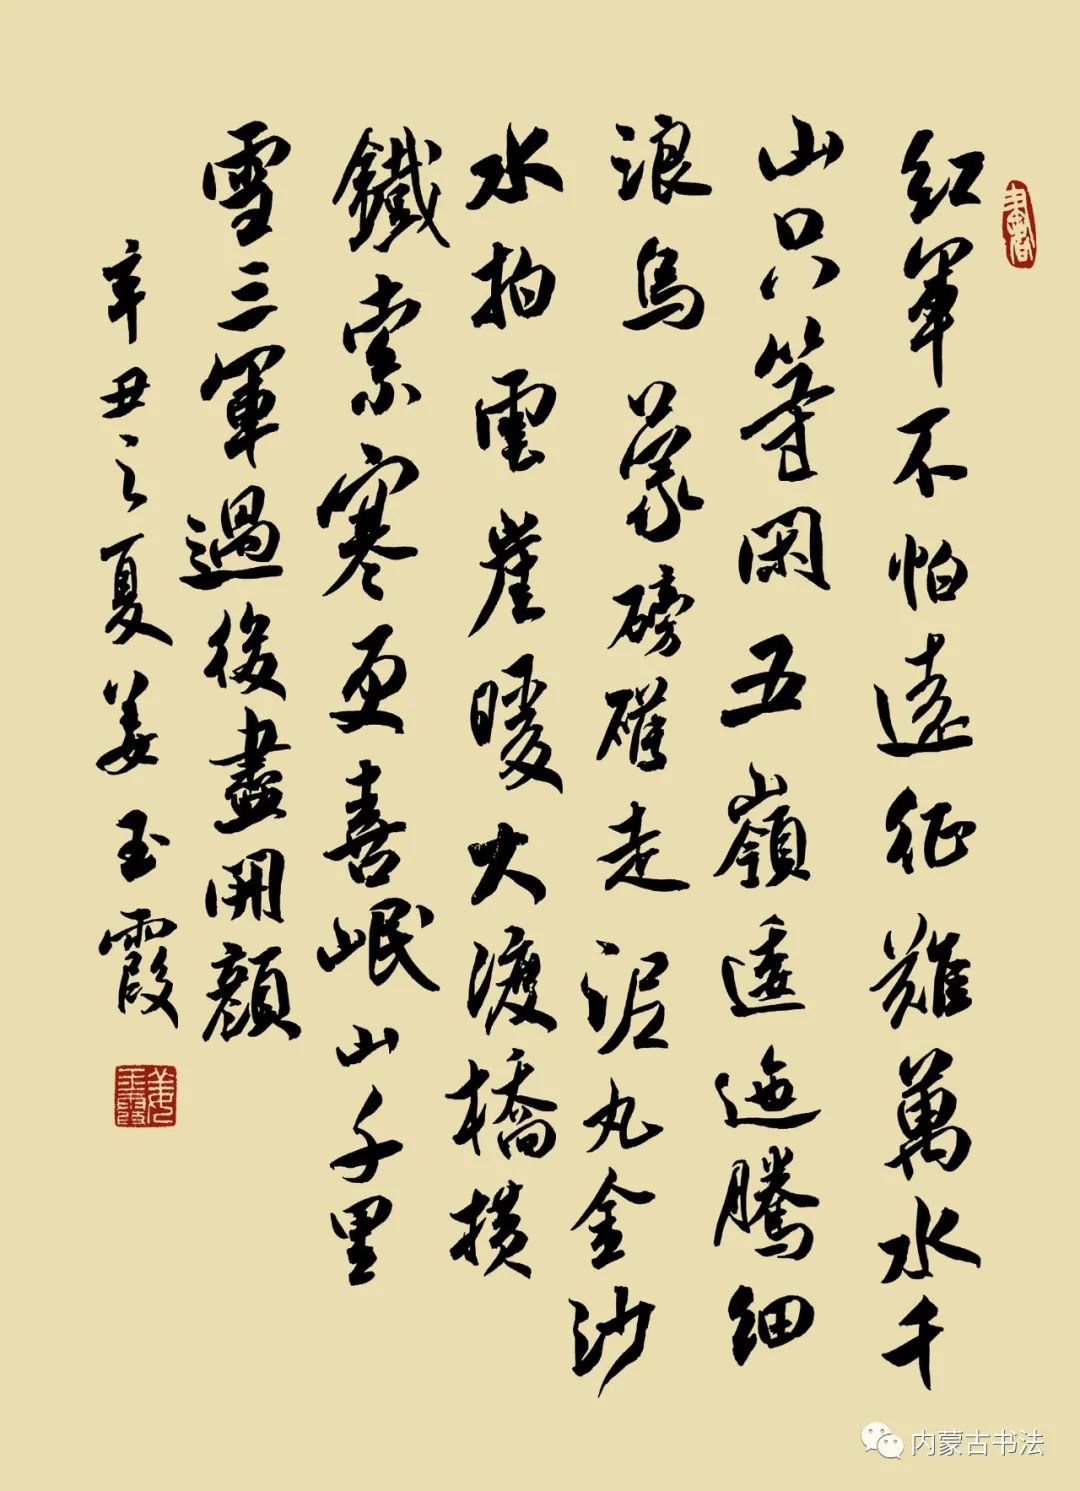 红军不怕遠征難萬水千
山只等閑五嶺逶迤騰細
浪烏蒙磅礴走泥丸金沙
水拍雲崖暖大渡橋横
鐵索寒更喜岷山千里
雪三軍過後盡開顔
辛丑之夏姜玉霞
内蒙古书法